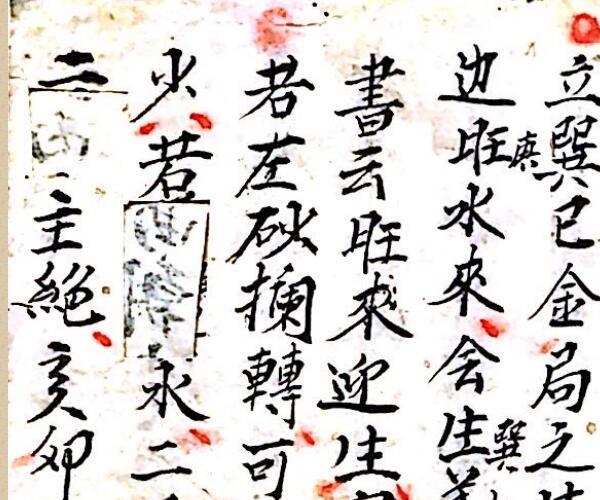 立巽巳金局之
边旺庚水來会生巽
書云旺來迎生
若左砂攔轉可
少若永二
二主絕亥卯